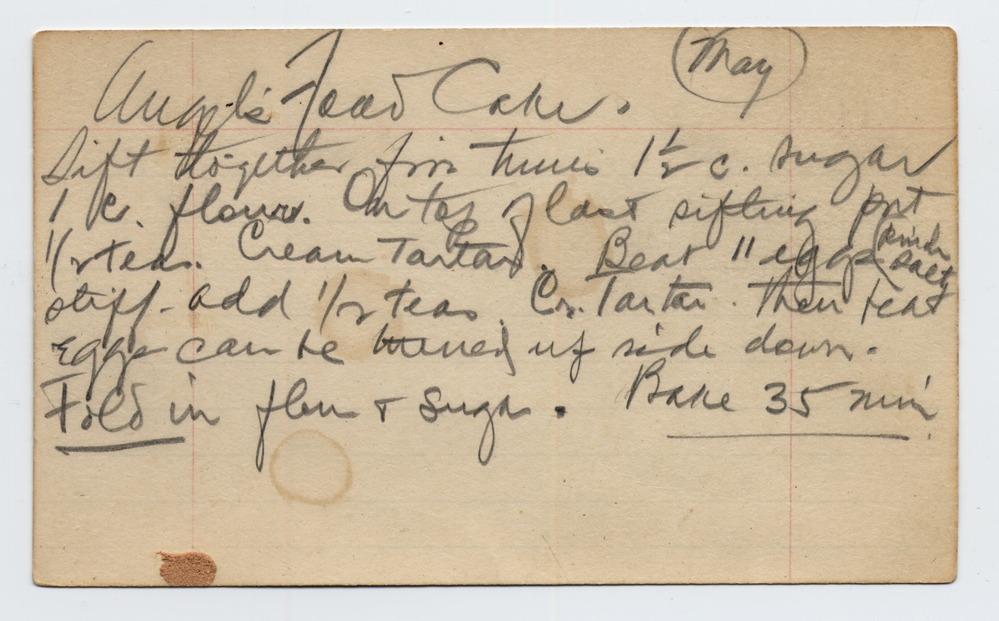 May
Angel's Food Cake.
Sift together five times 1½ c. sugar
1 c. flour. On top of last sifting put
1/2 teas. Cream Tartar. Beat 11 eggs (pinch salt
stiff - add 1/2 teas. Cr. Tartar. Then beat
eggs can be turned up side down.
Fold in flour + sugar. Bake 35 min.